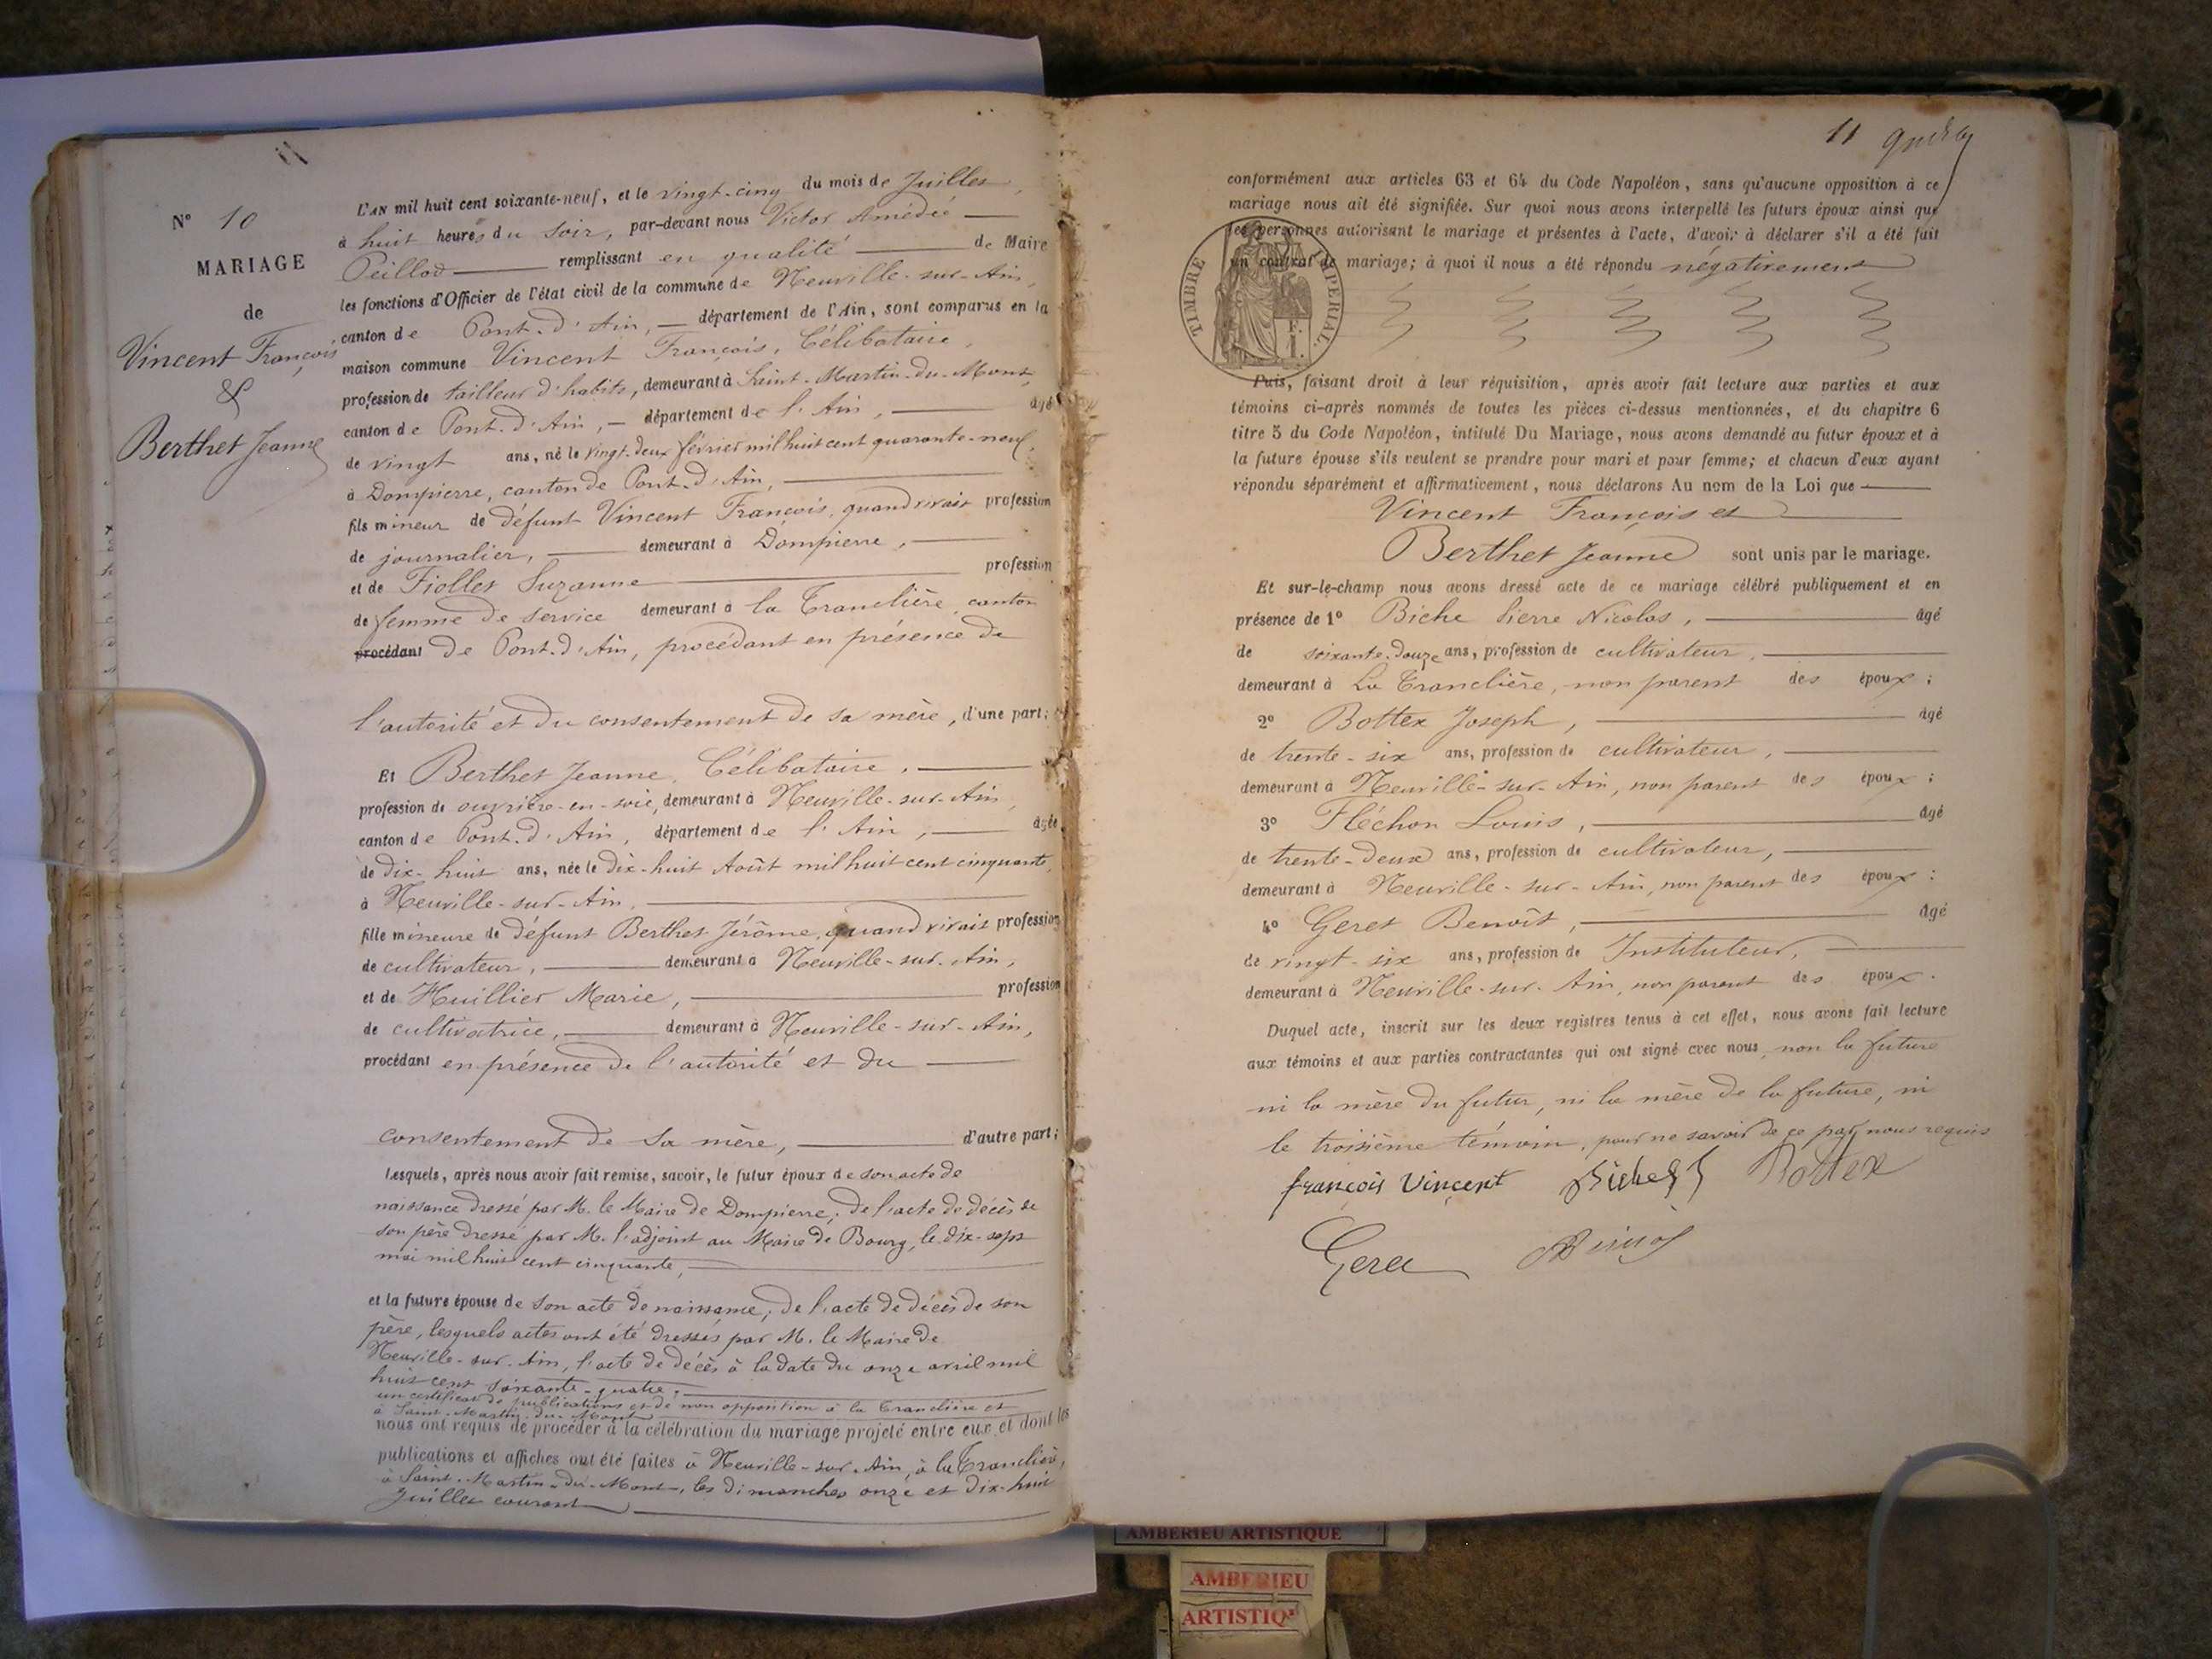 N° 10
MARIAGE
de
Vincent François
&
Berthet Jeanne
L'AN mil huit cent soixante-neuf, et le vingt-cinq du mois de Juillet,
à huit heures du soir, par-devant nous Victor Amédée
Peillod remplissant en qualité de Maire
les fonctions d'Officier de l'état civil de la commune de Neuville-sur-Ain,
canton de Pont-d'Ain, département de l'Ain, sont comparus en la
maison commune Vincent François, Célibataire,
profession de tailleur d'habits, demeurant à Saint-Martin-du-Mont,
canton de Pont-d'Ain, département de l'Ain, âgé
de vingt ans, né le vingt-deux février mil huit cent quarante-neuf,
à Dompierre, canton de Pont-d'Ain,
fils mineur de défunt Vincent François, quand vivait profession
de journalier, demeurant à Dompierre,
et de Fiollet Suzanne profession
de femme de service demeurant à la Tranclière, canton
procédant de Pont-d'Ain, procédant en présence de
l'autorité et du consentement de sa mère, d'une part;
Et Berthet Jeanne, Célibataire,
profession de ouvrière-en-soie, demeurant à Neuville-sur-Ain,
canton de Pont-d'Ain, département de l'Ain, âgée
de dix-huit ans, née le dix-huit Août mil huit cent cinquante,
à Neuville-sur-Ain,
fille mineure de défunt Berthet Jérôme, quand vivait profession
de cultivateur, demeurant à Neuville-sur-Ain,
et de Huillier Marie, profession
de cultivatrice, demeurant à Neuville-sur-Ain,
procédant en présence de l'autorité et du
consentement de sa mère, d'autre part;
Lesquels, après nous avoir fait remise, savoir, le futur époux de son acte de
naissance dressé par M. le Maire de Dompierre; de l'acte de décès de
son père dressé par M. l'adjoint au Maire de Bourg, le dix-sept
mai mil huit cent cinquante,
et la future épouse de son acte de naissance; de l'acte de décès de son
père, lesquels actes ont été dressés par M. le Maire de
Neuville-sur-Ain, l'acte de décès à la date du onze avril mil
huit cent soixante-quatre.
un certificat de publications et de non opposition à la Tranclière et
à Saint-Martin-du-Mont
nous ont requis de procéder à la célébration du mariage projeté entre eux et dont les
publications et affiches ont été faites à Neuville-sur-Ain, à la Tranclière,
à Saint-Martin-du-Mont, les dimanches onze et dix-huit
Juillet courant
11
conformément aux articles 63 et 64 du Code Napoléon, sans qu'aucune opposition à ce
mariage nous ait été signifiée. Sur quoi nous avons interpellé les futurs époux ainsi que
les personnes autorisant le mariage et présentes à l'acte, d'avoir à déclarer s'il a été fait
un contrat de mariage; à quoi il nous a été répondu négativement
TIMBRE IMPERIAL.
Puis, faisant droit à leur réquisition, après avoir fait lecture aux parties et aux
témoins ci-après nommés de toutes les pièces ci-dessus mentionnées, et du chapitre 6
titre 5 du Code Napoléon, intitulé Du Mariage, nous avons demandé au futur époux et à
la future épouse s'ils veulent se prendre pour mari et pour femme; et chacun d'eux ayant
répondu séparément et affirmativement, nous déclarons Au nom de la Loi que
Vincent François et
Berthet Jeanne sont unis par le mariage.
Et sur-le-champ nous avons dressé acte de ce mariage célébré publiquement et en
présence de 1° Biche Pierre Nicolas, âgé
de soixante-douze ans, profession de cultivateur,
demeurant à La Tranclière, non parent des époux;
2° Bottex Joseph, âgé
de trente-six ans, profession de cultivateur,
demeurant à Neuville-sur-Ain, non parent des époux;
3° Fléchon Louis, âgé
de trente-deux ans, profession de cultivateur,
demeurant à Neuville-sur-Ain, non parent des époux;
4° Geret Benoît, âgé
de vingt-six ans, profession de Instituteur,
demeurant à Neuville-sur-Ain, non parent des époux.
Duquel acte, inscrit sur les deux registres tenus à cet effet, nous avons fait lecture
aux témoins et aux parties contractantes qui ont signé avec nous, non la future
ni la mère du futur, ni la mère de la future, ni
le troisième témoin, pour ne savoir de ce par nous requis
françois Vincent Biche Bottex
Geret
AMBERIEU ARTISTIQUE
AMBERIEU
ARTISTIQ